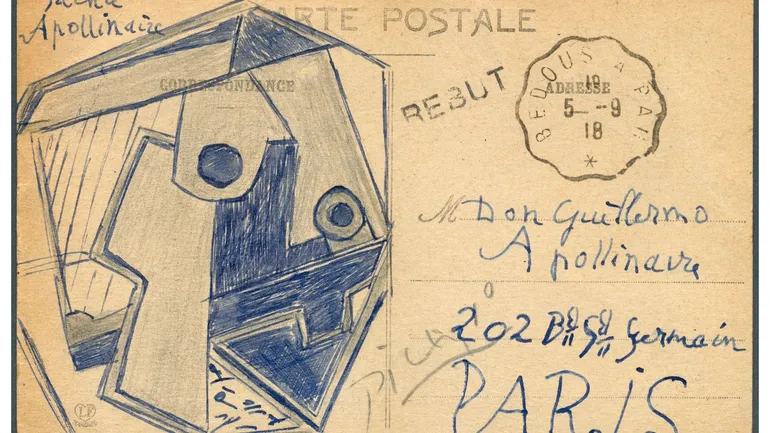 Apollinaire
CARTE POSTALE
CORRESPONDANCE
REBUT
BEDOUS A PAU
ADRESSE
19
5 - 9
18
*
M Don Guillermo
Apollinaire
202 Bd St Germain
PARIS
Picasso
LF